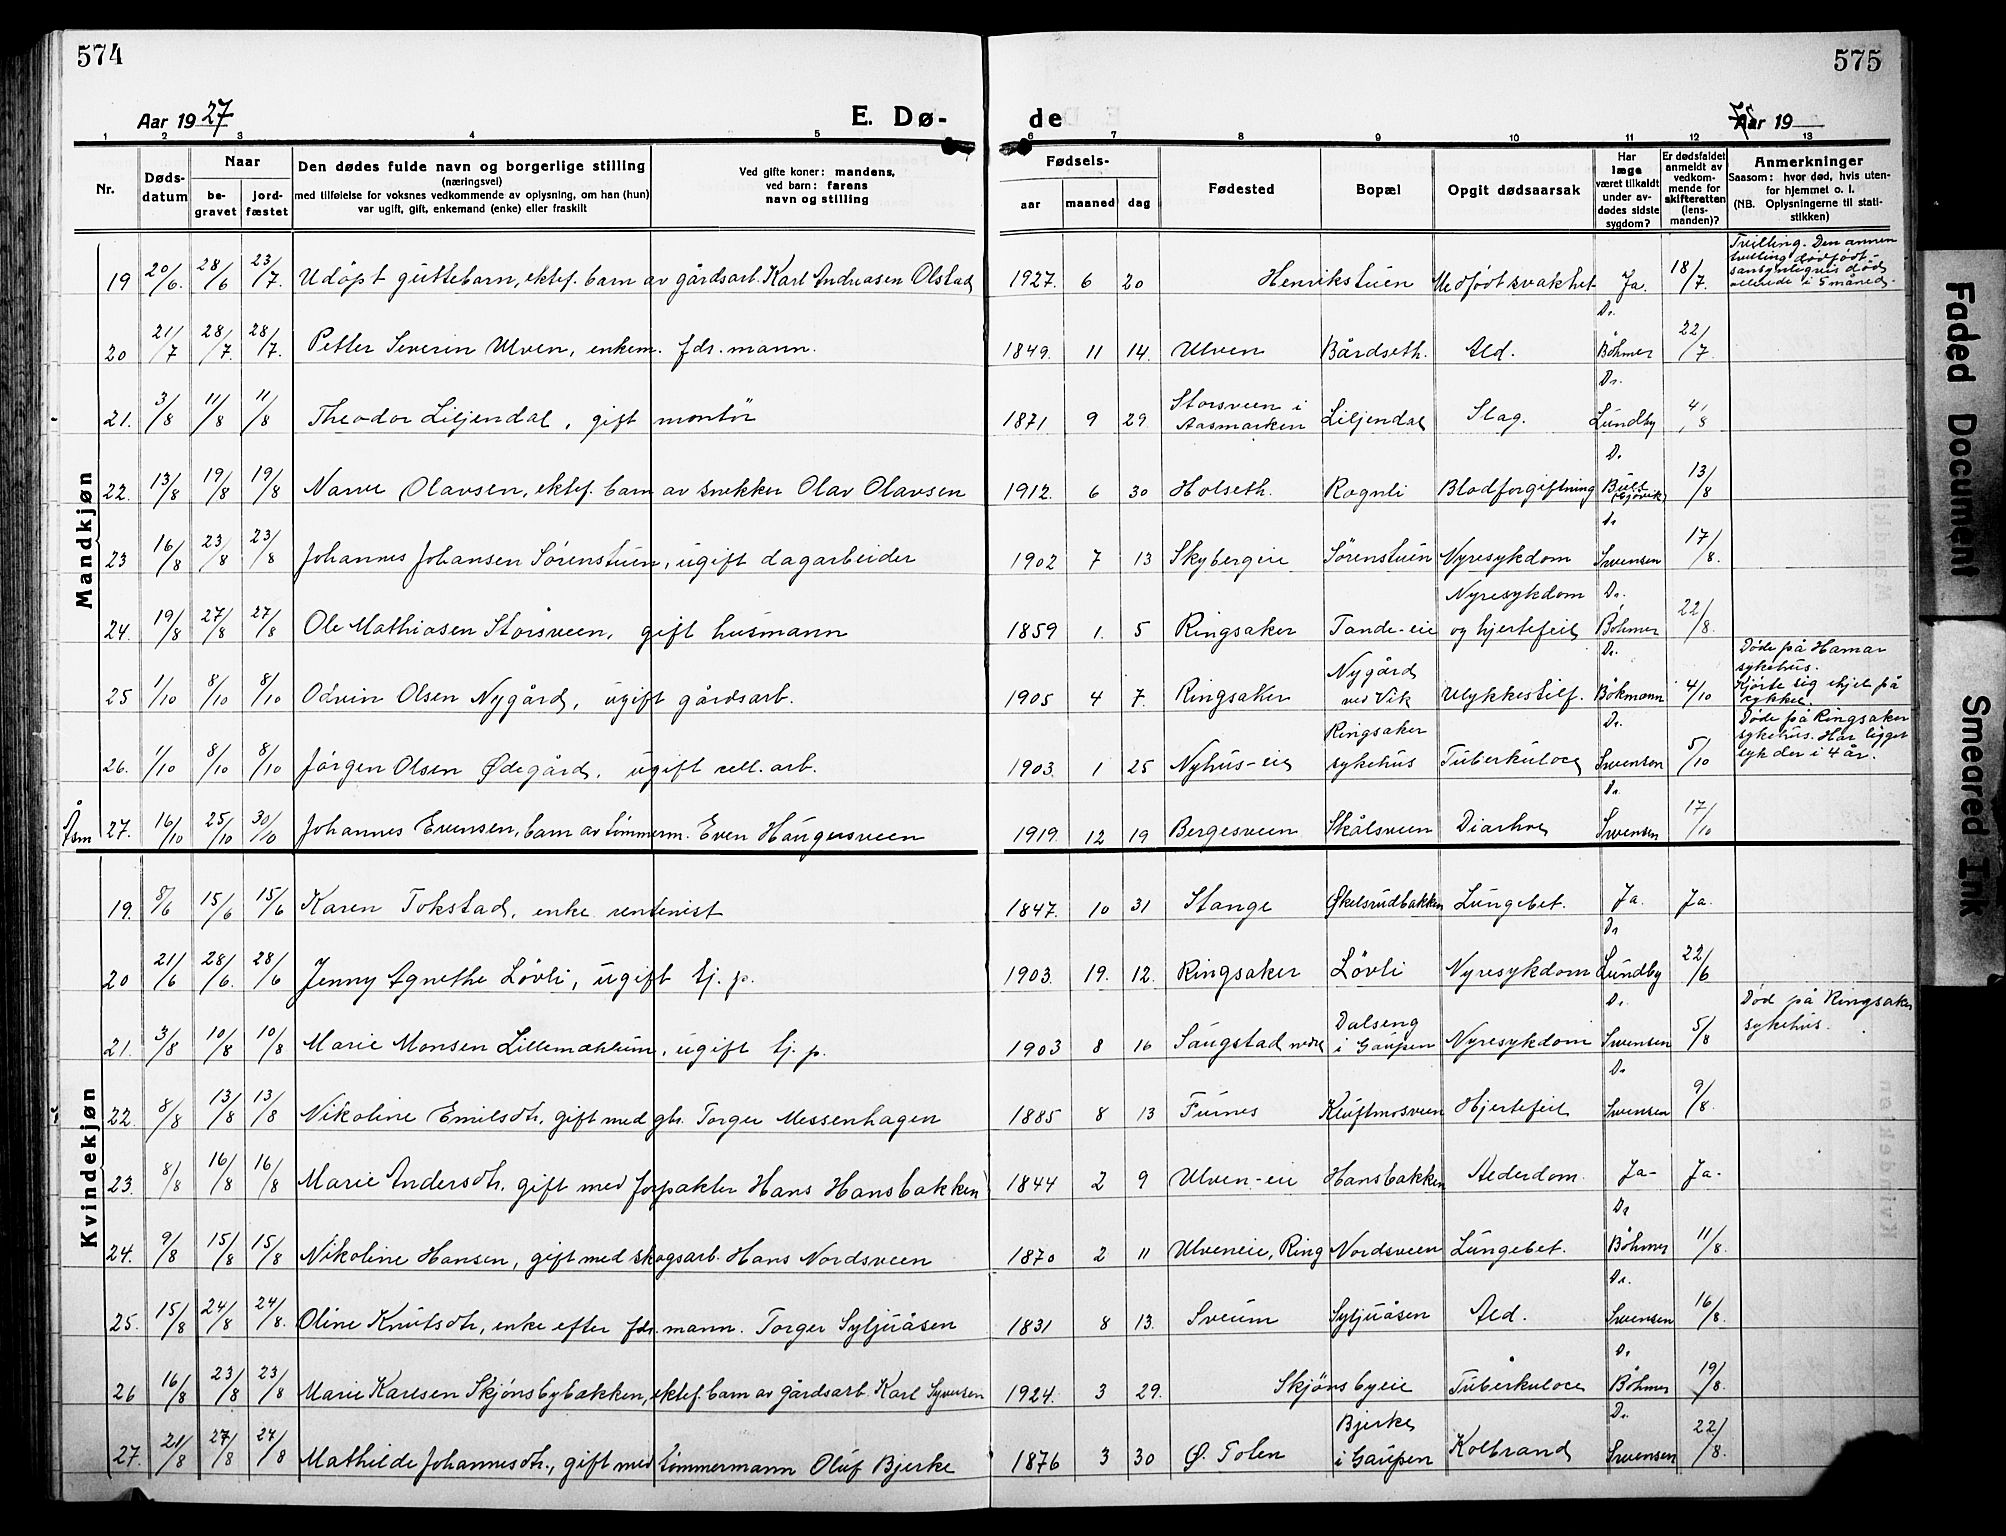 574
575
Aar 1927
E. Dø-
de
Aar 19
1 2 3 4 5 6 7 8 9 10 11 12 13
Nr.
Døds-
datum
Naar
be-
gravet
jord-
fæstet
Den dødes fulde navn og borgerlige stilling
(næringsvei)
med tilføielse for voksnes vedkommende av oplysning, om han (hun)
var ugift, gift, enkemand (enke) eller fraskilt
Ved gifte koner: mandens,
ved barn: farens
navn og stilling
Fødsels-
aar maaned dag
Fødested
Bopæl
Opgit dødsaarsak
Har
læge
været tilkaldt
under av-
dødes sidste
sygdom?
Er dødsfaldet
anmeldt av
vedkom-
mende for
skifteretten
(lens-
manden)?
Anmerkninger
Saasom: hvor død, hvis uten-
for hjemmet o. l.
(NB. Oplysningerne til stati-
stikken)
Mandkjøn
19 20/6 28/6 23/7. Udøpt guttebarn, ektef. barn av gårdsarb. Karl Andreasen Olstad 1927. 6 20 Henrikstuen Medfødt svakhet Ja. 18/7. Tvilling. Den annen
tvilling dødfødt
sansynligvis død
allerede i 5 måned.
20 21/7 28/7. 28/7. Petter Severin Ulven, enkem. fdr. mann. 1849. 11 14. Ulven Bårdseth. Ald. Dr. Böhmer 22/7
21. 3/8 11/8 11/8 Theodor Liljendal, gift montør 1871 9 29. Storsveen i Aasmarken Liljendal Slag. Dr. Lundby 4/8
22. 13/8 19/8 19/8 Narve Olavsen, ektef. barn av snekker Olav Olavsen 1912. 6 30 Holseth. Rognli Blodforgiftning Dr. Bull Gjøvik 13/8
23 16/8 23/8 23/8 Johannes Johansen Sørenstuen, ugift dagarbeider 1902 7 13 Skybergeie Sørenstuen Nyresykdom Dr Svensen 17/8.
24. 19/8 27/8 27/8 Ole Mathiasen Storsveen, gift husmann 1859 1. 5 Ringsaker Tande-eie Nyresykdom og hjertefeil Dr. Böhmer 22/8.
25 1/10 8/10 8/10 Odvin Olsen Nygård, ugift gårdsarb. 1905 4 7. Ringsaker Nygård ved Vik Ulykkestilf. Dr. Bökmann 4/10 Døde på Hamar
sykehus.
Kjørte sig ihjel på
sykkel.
26. 1/10 8/10 8/10 Jørgen Olsen Ødegård, ugift cell. arb. 1903. 1 25 Nyhus-eie Ringsaker sykehus Tuberkulose Dr. Svensen 5/10 Døde på Ringsaker
sykehus. Har ligget
syk der i 4 år.
Åsm 27. 16/10 25/10 30/10 Johannes Evensen, barn av tømmerm. Even Haugersveen 1919. 12 19 Bergesveen Skålsveen Diarhoe Dr. Svensen 17/10
Kvindekjøn
19. 8/6 15/6 15/6 Karen Tokstad, enke rentenist 1847. 10 31 Stange Økelsrudbakken Lungebet. Ja. Ja.
20 21/6 28/6. 28/6 Jenny Agnethe Løvli, ugift tj. p. 1903. 19. 12. Ringsaker Løvli Nyresykdom Dr Lundby 22/6
21. 3/8 10/8 10/8 Marie Monsen Lillemæhlum, ugift tj. p. 1903 8 16 Saugstad nedre Dalseng i Gaupen Nyresykdom Dr. Svensen 5/8 Død på Ringsaker
sykehus.
22. 8/8 13/8 13/8 Nikoline Emilsdtr. gift med gbr. Torger Messenhagen 1885 8 13 Furnes Kluftmosveen Hjertefeil Dr Svensen 9/8.
23. 8/8 16/8 16/8 Marie Andersdtr. gift med forpakter Hans Hansbakken 1844 2 9 Ulven-eie Hansbakken Alderdom. Ja- Ja-
24. 9/8 15/8 15/8 Nikoline Hansen, gift med skogsarb. Hans Nordsveen 1870 2 11 Ulveneie, Ring Nordsveen Lungebet. Dr Böhmer 11/8.
25. 15/8 24/8 24/8. Oline Knutsdtr, enke efter fdr. mann. Torger Syljuåsen 1831 8 13. Sveum Syljuåsen Ald. Dr. Svensen 16/8.
26 16/8 23/8 23/8 Marie Karlsen Skjønsbybakken, ektef. barn av gårdsarb. Karl Syversen 1924. 3 29. Skjønsbyeie Tuberkulose Dr Böhmer 19/8.
27. 21/8 27/8 27/8 Mathilde Johannesdtr., gift med tømmermann Oluf Bjerke 1876 3 30 Ø. Tolen Bjerke i Gaupen Kolbrand Dr. Svensen 22/8.
Faded Document
Smeared Ink